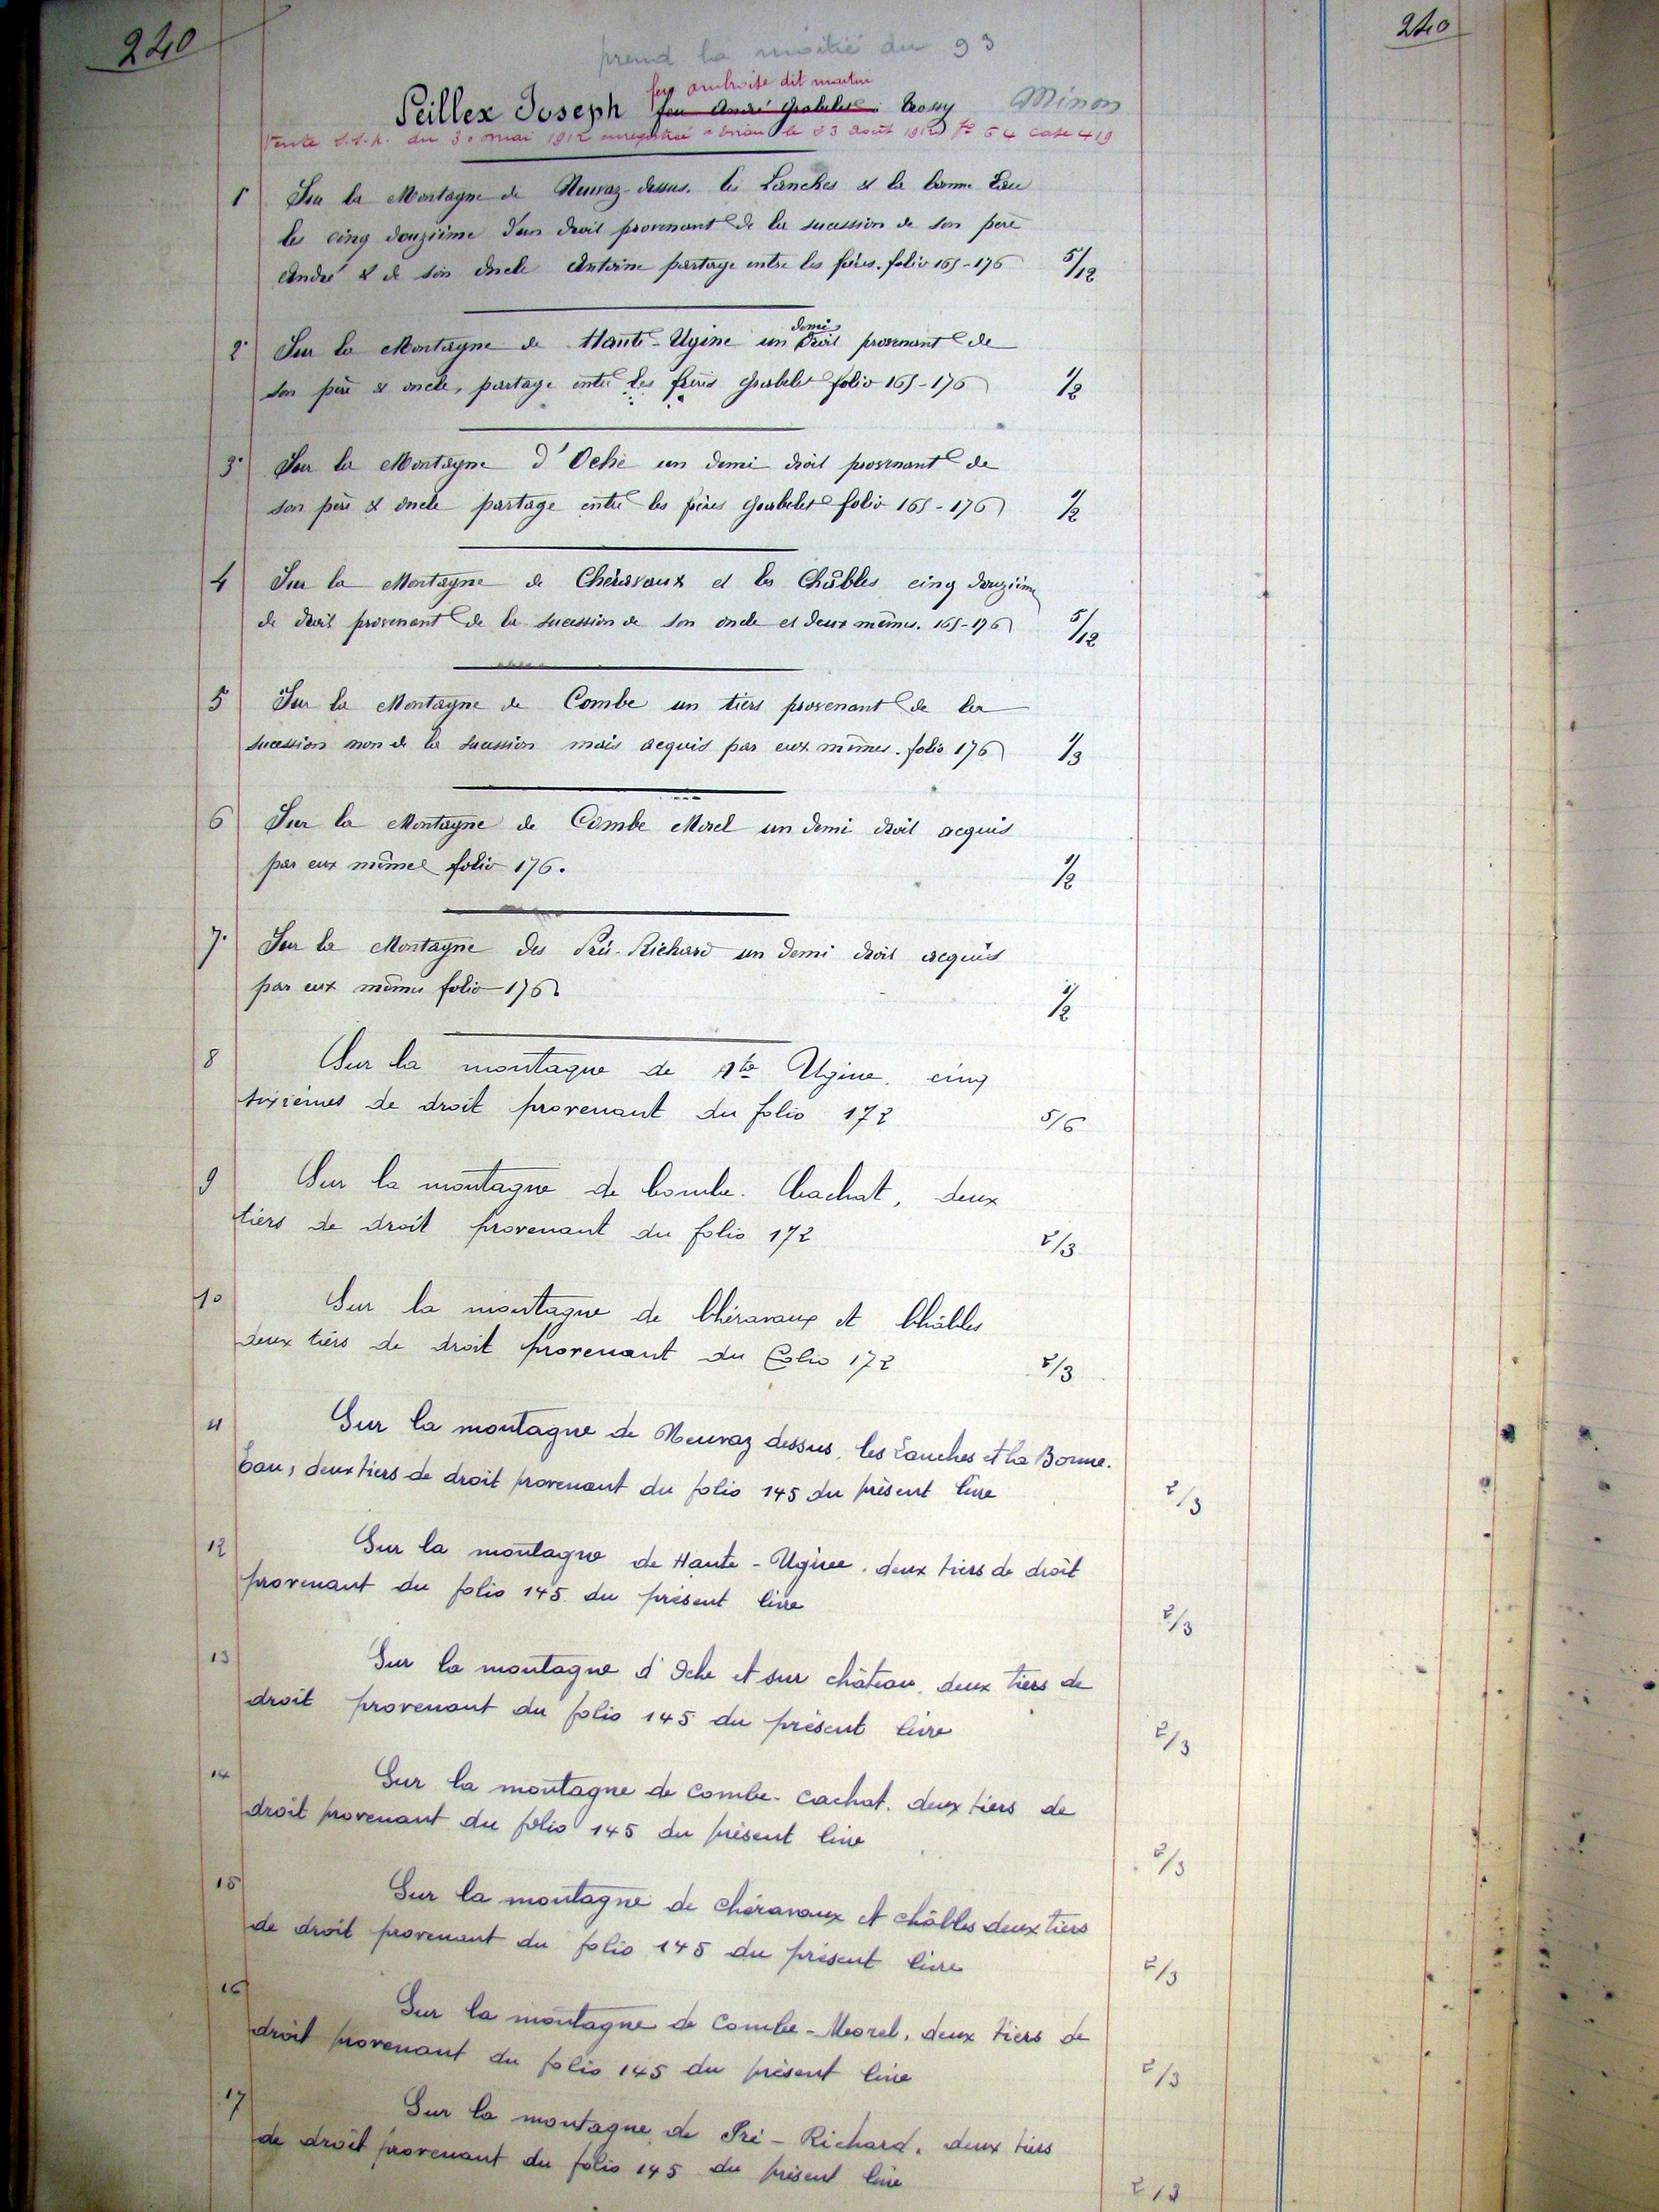 240
240
prend la moitié du 93
feu ambroise dit martin
Peillex Joseph feu André Grabelet Trossy Minon
Vente S.S.P. du 30 mai 1912 enregistrée à Evian le 23 Août 1912 f° 64 case 419
1 Sur la Montagne de Neuvaz-dessus. les Lanches & la bonne Eau
les cinq douzième d'un droit provenant de la sucession de son père
André & de son oncle Antoine partage entre les frères. folio 165-176 5/12
2° Sur la Montagne de Haute-Ugine un demi droit provenant de
son père & oncle, partage entre les frères Grabelet folio 165-176 1/2
3° Sur la Montagne d'Oche un demi droit provenant de
son père & oncle partage entre les frères Grabelet folio 165-176 1/2
4 Sur la Montagne de Chéravaux et les Châbles cinq douzième
de droit provenant de la sucession de son oncle et deux mêmes. 165-176 5/12
5 Sur la Montagne de Combe un tiers provenant de la
sucession non de la sucession mais acquis par eux mêmes. folio 176 1/3
6 Sur la Montagne de Combe Morel un demi droit acquis
par eux même folio 176. 1/2
7° Sur la Montagne des Prés-Richard un demi droit acquis
par eux mêmes folio 176. 1/2
8 Sur la montagne de Hte Ugine. cinq
sixièmes de droit provenant du folio 172 5/6
9 Sur la montagne de Combe. Cachat, deux
tiers de droit provenant du folio 172 2/3
10 Sur la montagne de Chéravaux et Châbles
deux tiers de droit provenant du folio 172 2/3
11 Sur la montagne de Neuvaz dessus, les Lanches et la Bonne.
Eau, deux tiers de droit provenant du folio 145 du présent livre 2/3
12 Sur la montagne de Haute-Ugine. deux tiers de droit
provenant du folio 145 du présent livre 2/3
13 Sur la montagne d'Oche et sur château, deux tiers de
droit provenant du folio 145 du présent livre 2/3
14 Sur la montagne de Combe-Cachat. deux tiers de
droit provenant du folio 145 du présent livre 2/3
15 Sur la montagne de Chéravaux et châbles deux tiers
de droit provenant du folio 145 du présent livre 2/3
16 Sur la montagne de Combe-Morel, deux tiers de
droit provenant du folio 145 du présent livre 2/3
17 Sur la montagne de Pré-Richard. deux tiers
de droit provenant du folio 145 du présent livre 2/3